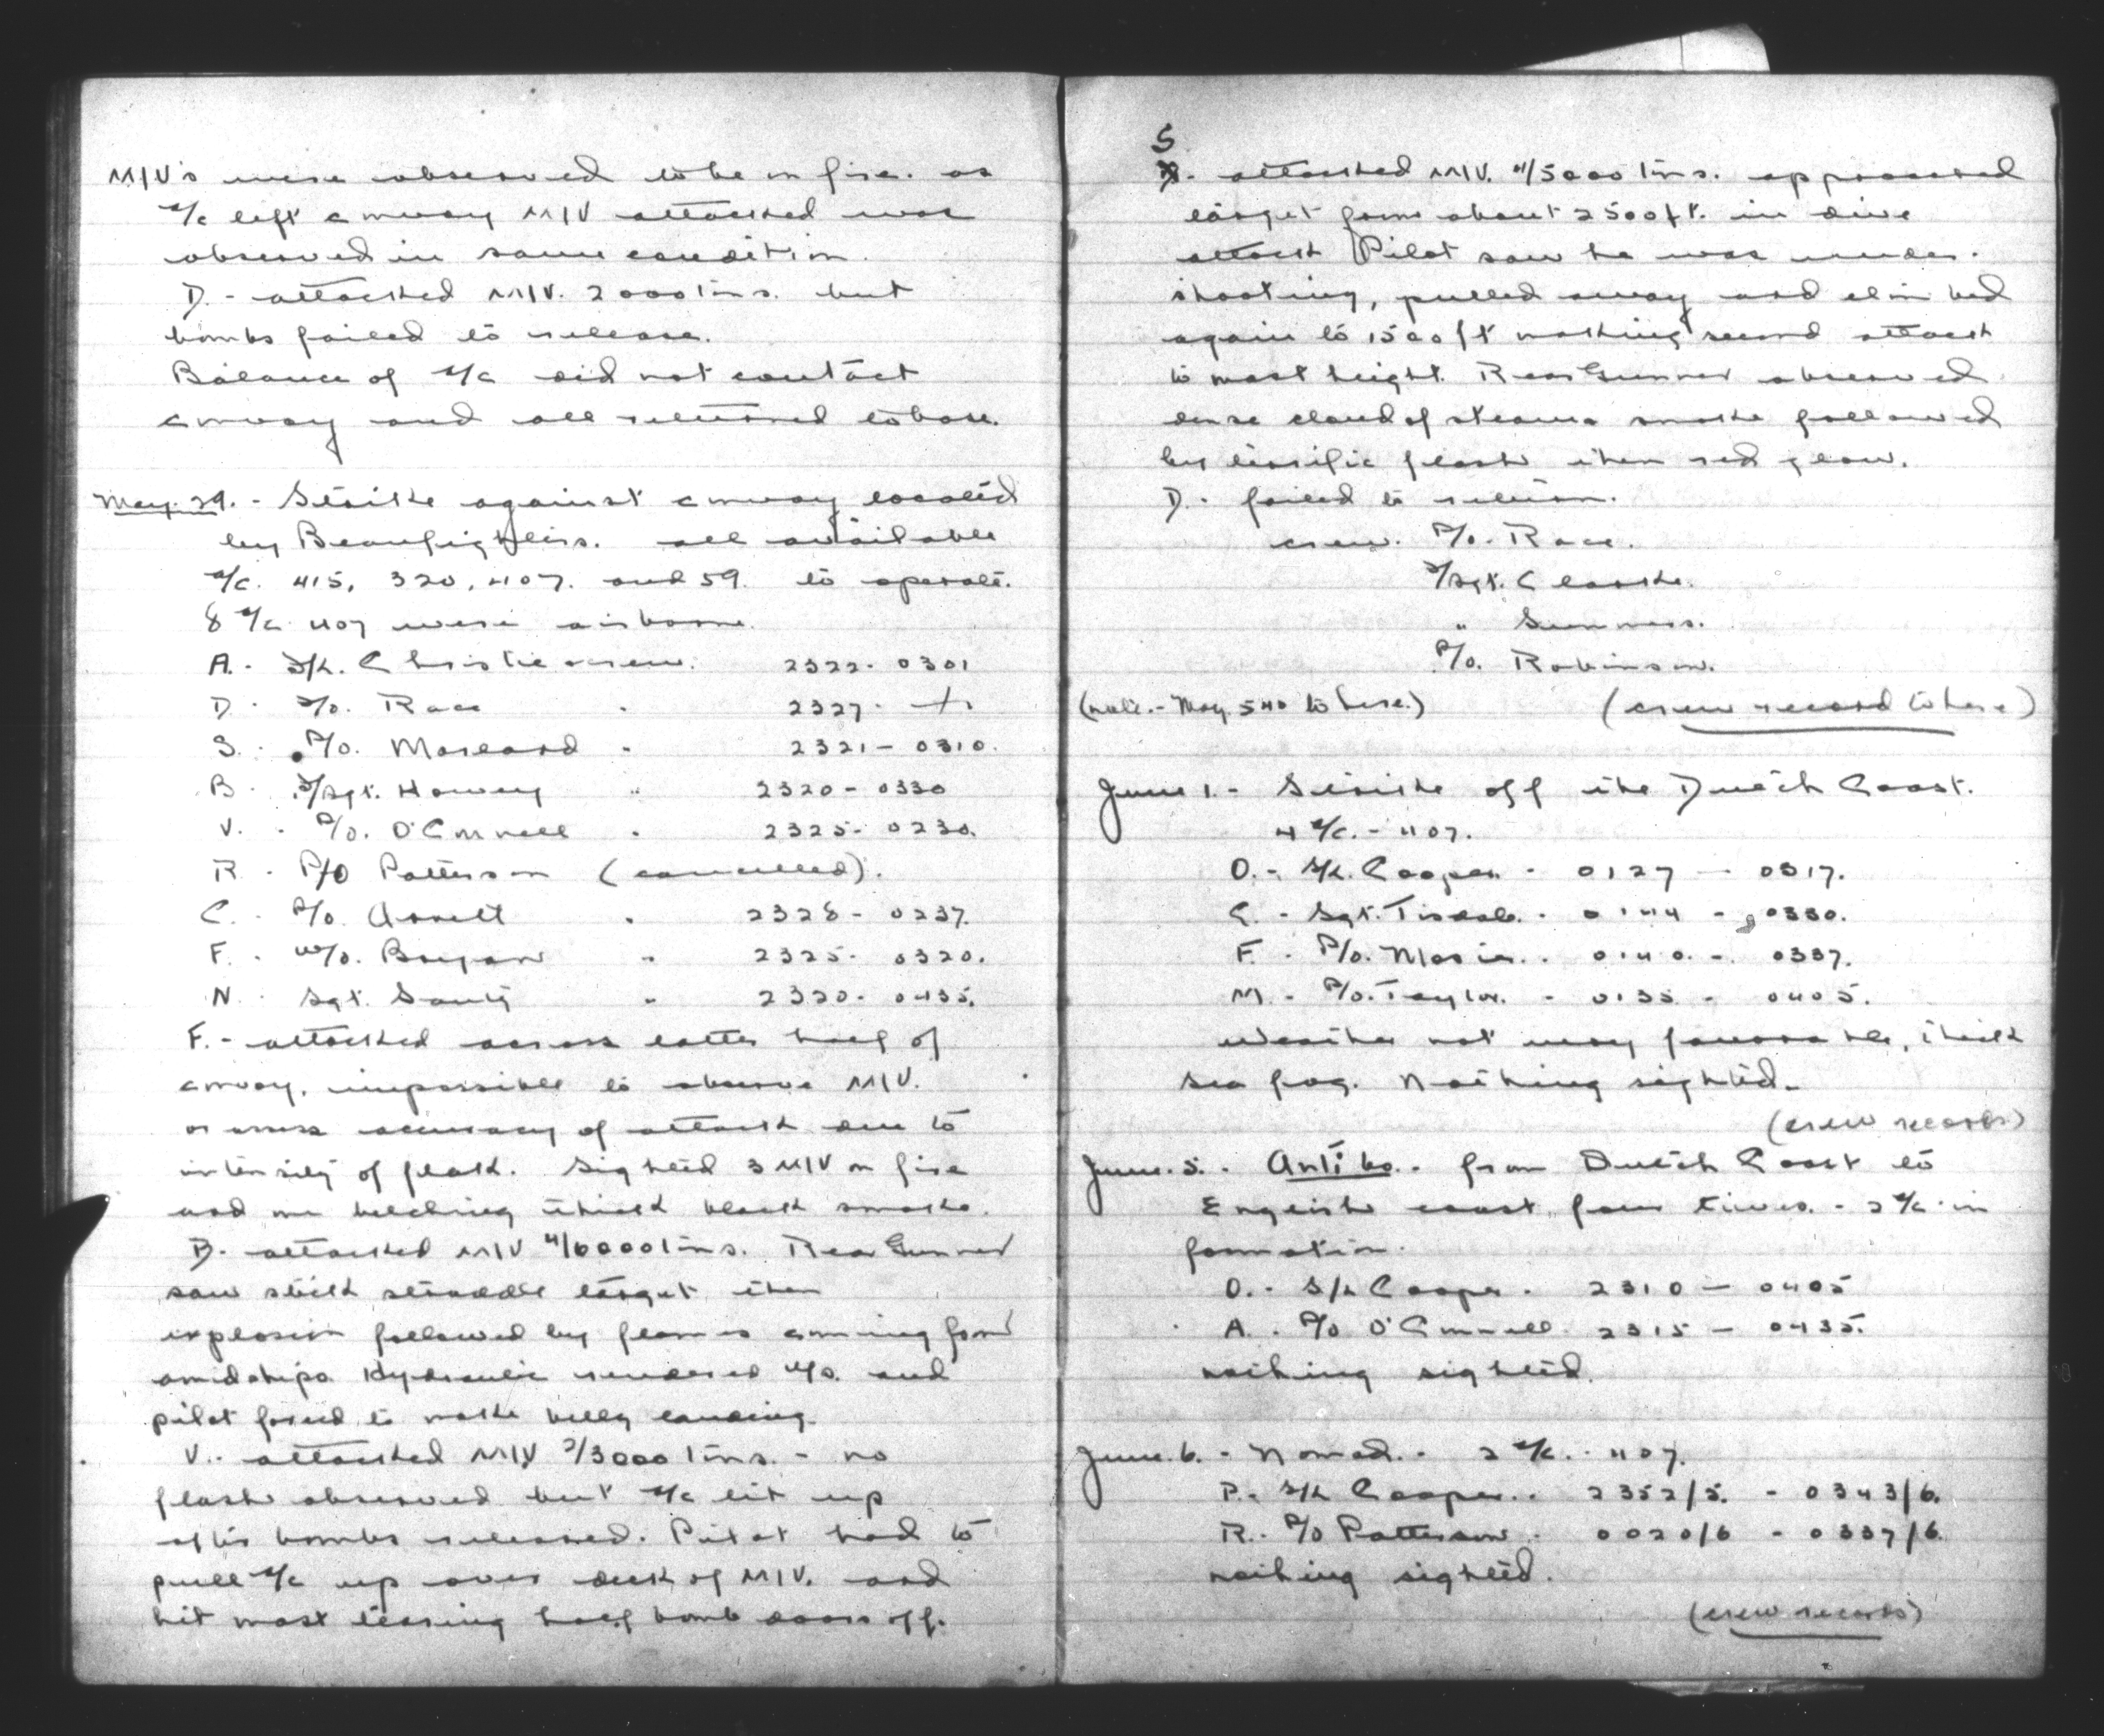 M/V's were observed to be on fire. as
a/c left convoy M/V attacked was
observed in same condition.
D. - attacked M/V. 2000 tons. but
bombs failed to release.
Balance of a/c did not contact
convoy and all returned to base.
May. 29. - Strike against convoy located
by Beaufighters. all available
a/c. 415, 320, 407. and 59. to operate.
8 a/c 407 were airborne.
A. - S/L. Christie & crew. 2322 - 0301
D - P/O. Race " 2327 - +
S. - P/O. Morland " 2321 - 0310.
B - F/Sgt. Howey " 2320 - 0330
V. - P/O. O'Connell " 2325 - 0230.
R - P/O Patterson (cancelled).
C. - P/O. Asselt " 2328 - 0237.
F. - W/O. Bryan " 2325 - 0320.
N. - Sgt. " 2320 - 0435.
F. - attacked across latter half of
convoy. impossible to observe M/V.
or assess accuracy of attack due to
intensity of flack. Sighted 3 M/V on fire
and one belching thick black smoke.
B. - attacked M/V 4/6000 tons. Rear Gunner
saw stick straddle target then
explosion followed by flames coming from
amidships. Hydraulic rendered u/s. and
pilot forced to make belly landing.
V. - attacked M/V 2/3000 tons. - no
flash observed but a/c lit up
after bombs released. Pilot had to
pull a/c up over deck of M/V. and
hit mast tearing half bomb doors off.
S
- attacked M/V. 4/5000 tons. approached
target from about 2500 ft. in dive
attack Pilot saw he was under.
shooting, pulled away and climbed
again to 1500 ft making second attack
to mast height. Rear Gunner observed
dense cloud of steam & smoke followed
by terrific flash then red glow.
D. failed to return.
crew. P/O. Race.
F/Sgt. Clarke.
" Summers.
P/O. Robinson.
(note. - May. 540 to here.) (crew record to here)
June 1. - Strike off the Dutch Coast.
4 a/c. - 407.
O. - S/L. Cooper - 0127 - 0317.
C. - Sgt. Tisdale. - 0144 - 0330.
F. - P/O. Mosier. - 0140. - 0337.
M. - P/O. Taylor. - 0135 - 0405.
Weather not very favourable, thick
sea fog. Nothing sighted.
(crew records)
June. 5. - Anti bo. - from Dutch Coast to
English coast four times. - 2 a/c in
formation.
O. - S/L Cooper. 2310 - 0405
A. - P/O O'Connell. 2315 - 0435.
nothing sighted.
June. 6. - Nomad. - 2 a/c. - 407.
P. - S/L Cooper. - 2352/5. - 0343/6.
R. - P/O Patterson. - 0020/6 - 0337/6.
nothing sighted.
(crew records)